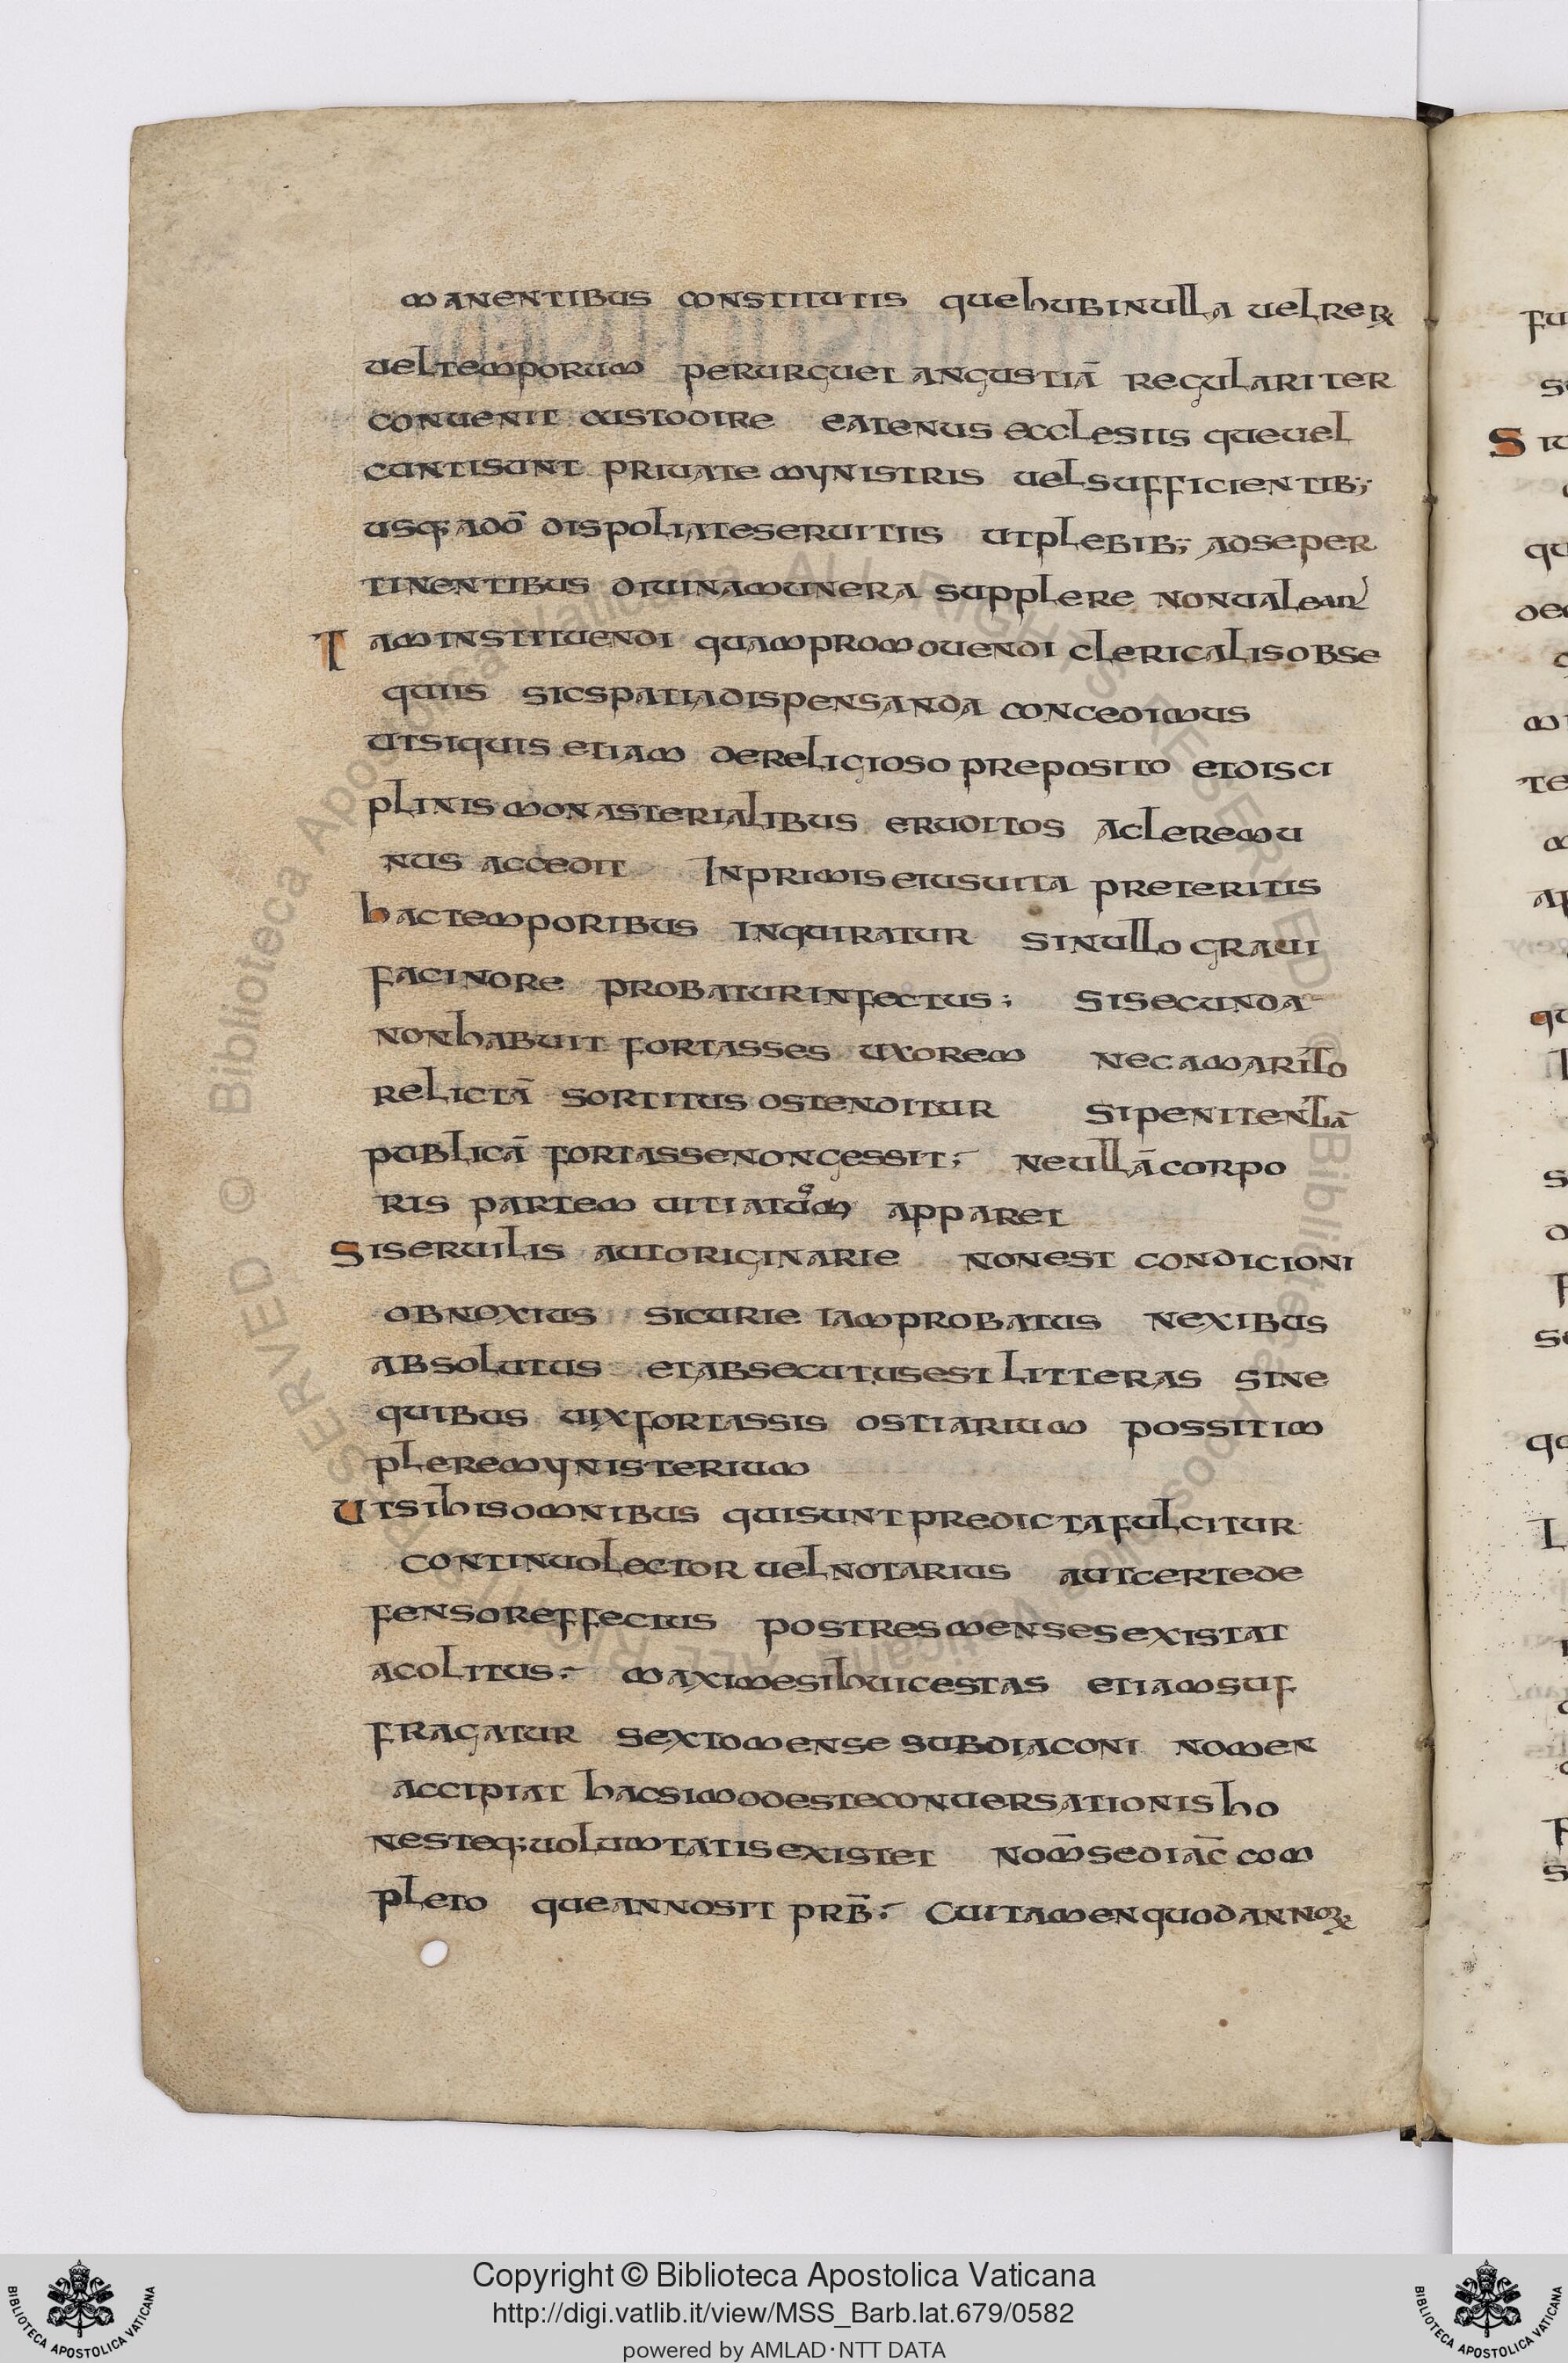 manentibus constitutis quehubinulla uelreꝝ
ueltemporum perurguet angustiā regulariter
conuenit custodire eatenus ecclesiis queuel
cuntisunt priuate mynistris uelsufficientib;;
usq; adō dispoliateseruitiis utplebib;; adseper
tinentibus diuinamunera supplere nonualean
Taminstituendi quampromouendi clericalisobse
quiis sicspatiadispensanda concedimus
utsiquis etiam dereligioso preposito etdisci
plinismonasterialibus eruditos acleremu
nus accedit Inprimiseiusuita preteritis
hactemporibus inquiratur sinullo graui
facinore probaturinfectus; sisecunda
nonhabuit fortasses uxorem necamarito
relictā sortitus ostenditur sipenitentiā
publicā fortassenongessit; neullācorpo
ris partem uitiatum apparet
Siseruilis autoriginarie nonest condicioni
obnoxius sicurie iamprobatus nexibus
absolutus etabsecutusest litteras sine
quibus uixfortassis ostiarium possitim
pleremynisterium
Utsihisomnibus quisuntpredictafulcitur
continuolector uelnotarius autcertede
fensoreffectus postresmensesexistat
acolitus; maximesihuicestas etiamsuf
fragatur sextomense subdiaconi nomen
accipiat hacsimodesteconuersationisho
nesteq;uolumtatisexistet nom̄sediac̄ com
pleto queannosit prb̄; Cuitamenquodannoꝝ
Copyright © Biblioteca Apostolica Vaticana
http://digi.vatlib.it/view/MSS_Barb.lat.679/0582
powered by AMLAD·NTT DATA